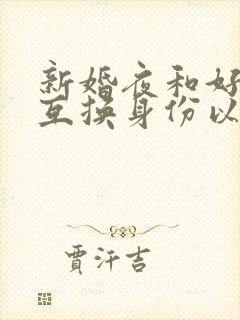 新婚夜和好
互换身份以
贾汗吉